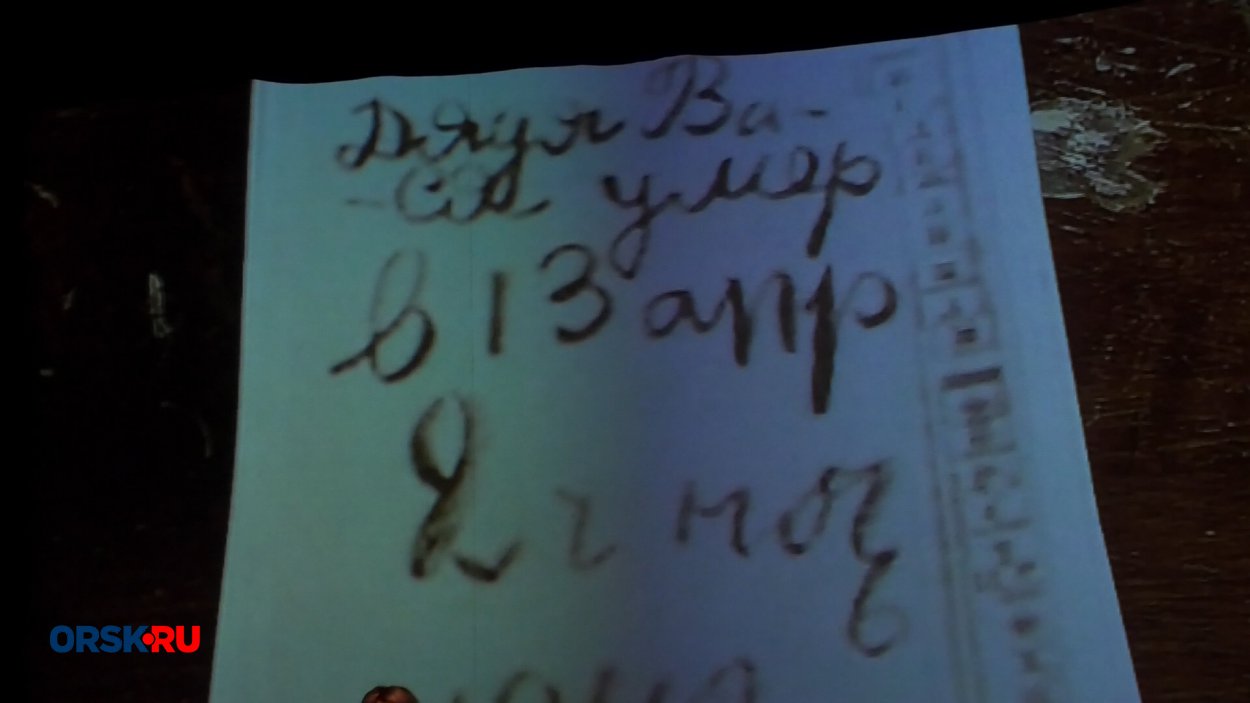 Дядя Ва-
-ся умер
в 13 апр
2 ч ноч
ORSK.RU